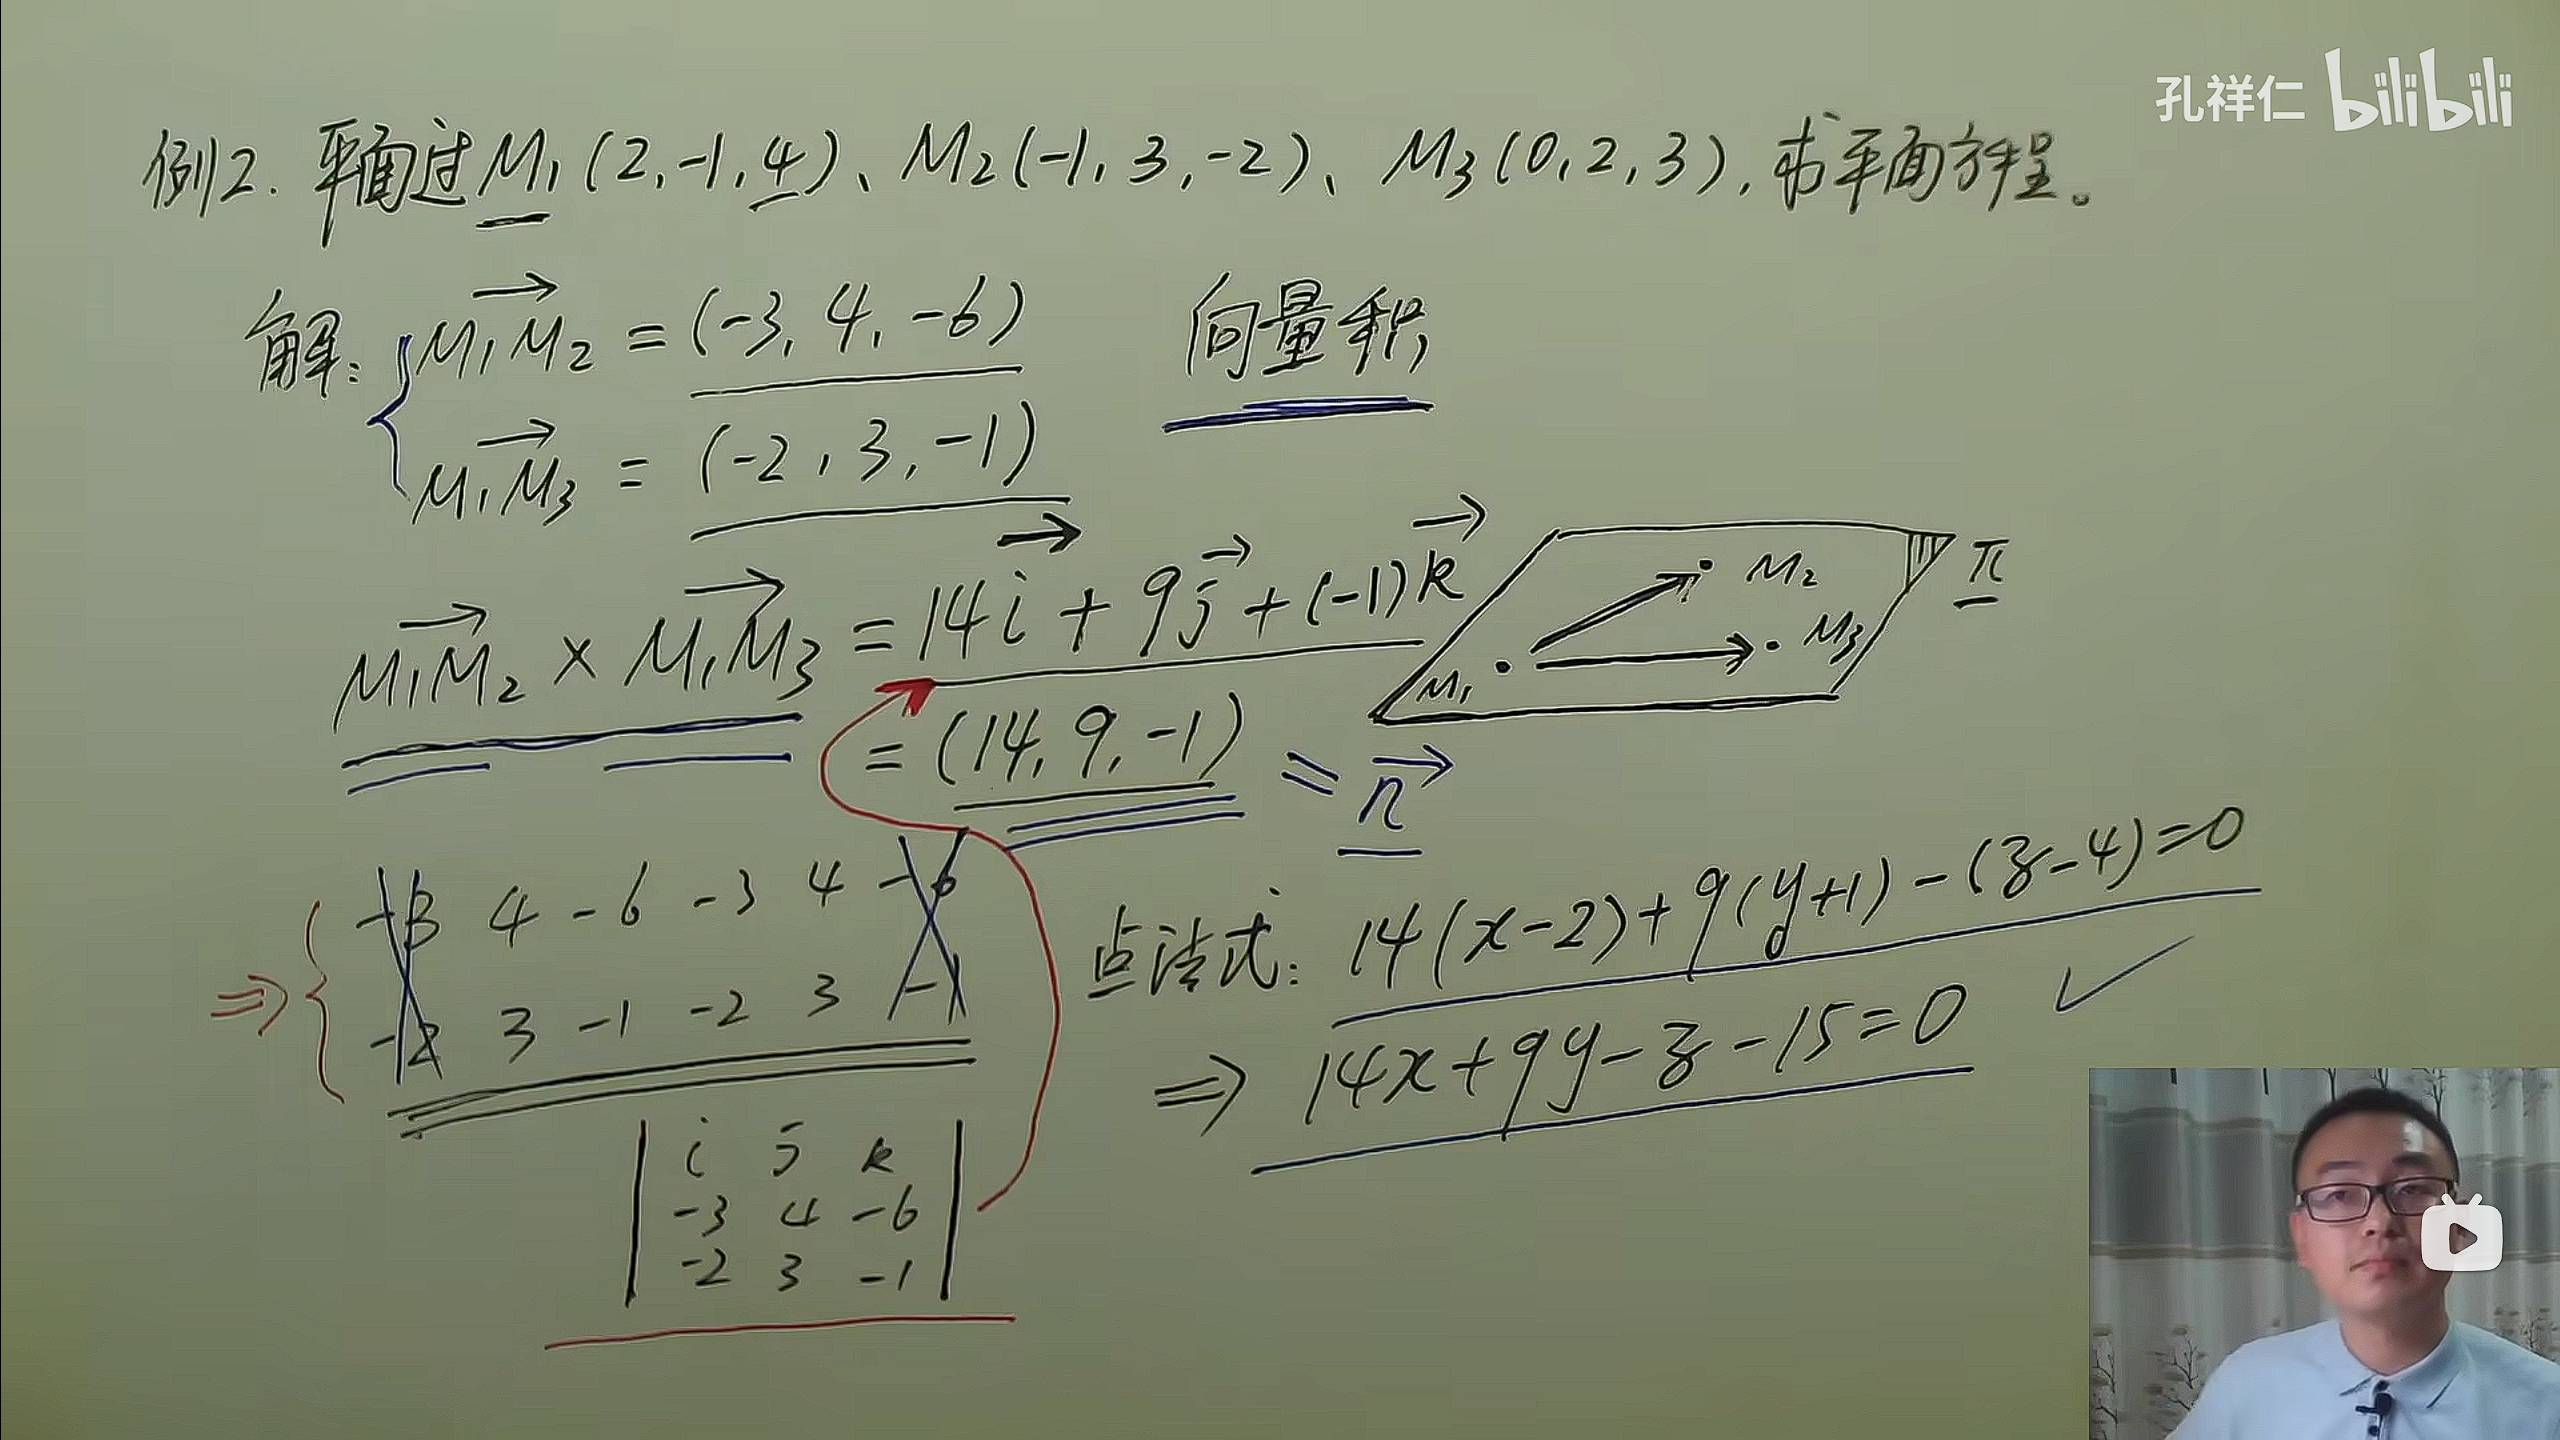 孔祥仁 bilibili
例2. 平面过M₁(2,-1,4)、M₂(-1,3,-2)、M₃(0,2,3),求平面方程。
解: M₁M₂ = (-3, 4, -6) 向量积
M₁M₃ = (-2, 3, -1)
M₁M₂ × M₁M₃ = 14i + 9j + (-1)k
= (14, 9, -1) = n
M₁ M₂ M₃ π
-3 4 -6 -3 4 -6
⇒ -2 3 -1 -2 3 -1
i j k
-3 4 -6
-2 3 -1
点法式: 14(x-2)+9(y+1)-(z-4)=0
⇒ 14x+9y-z-15=0 ✓